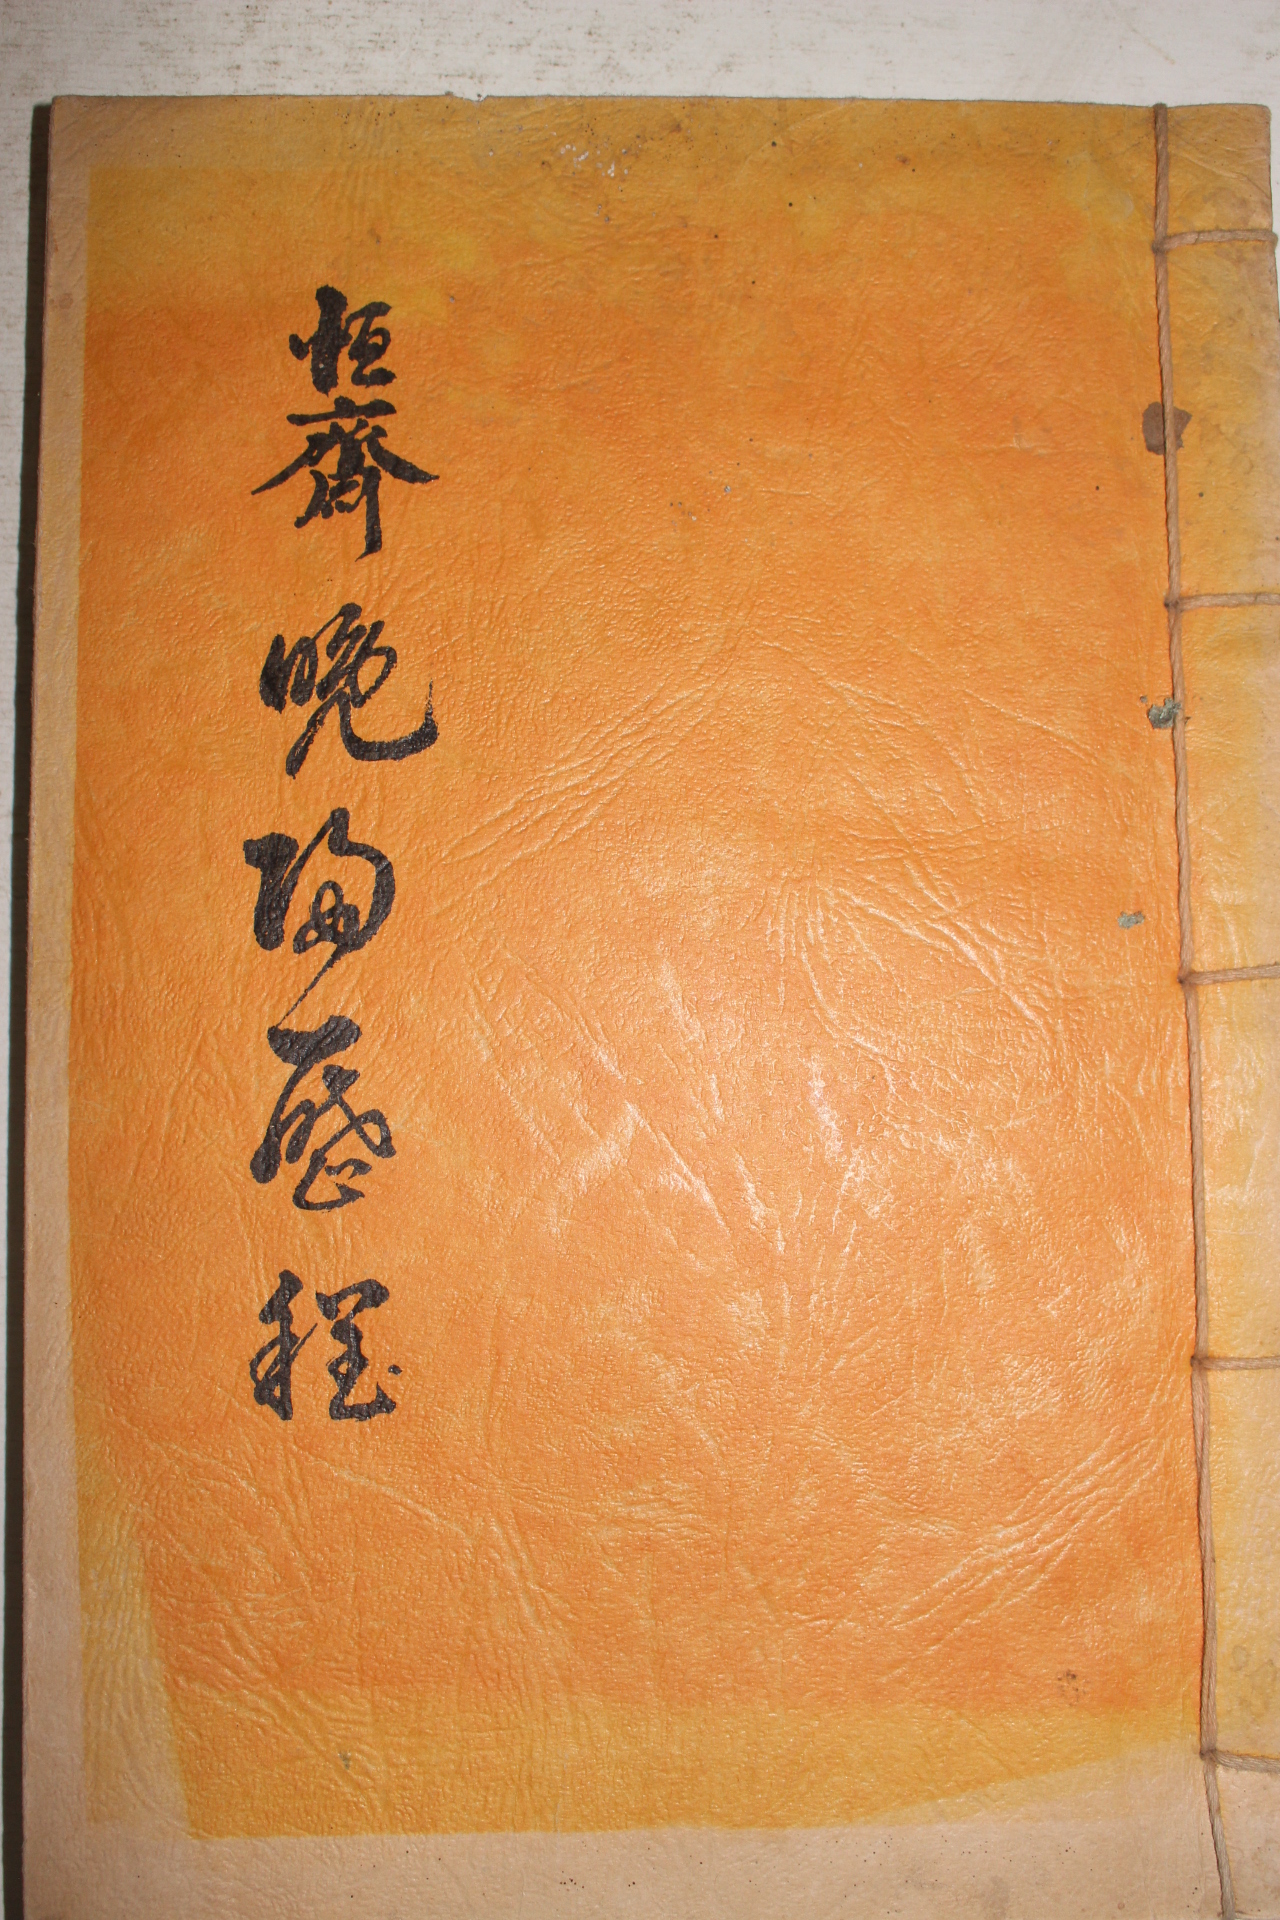 恒齋晩歷程